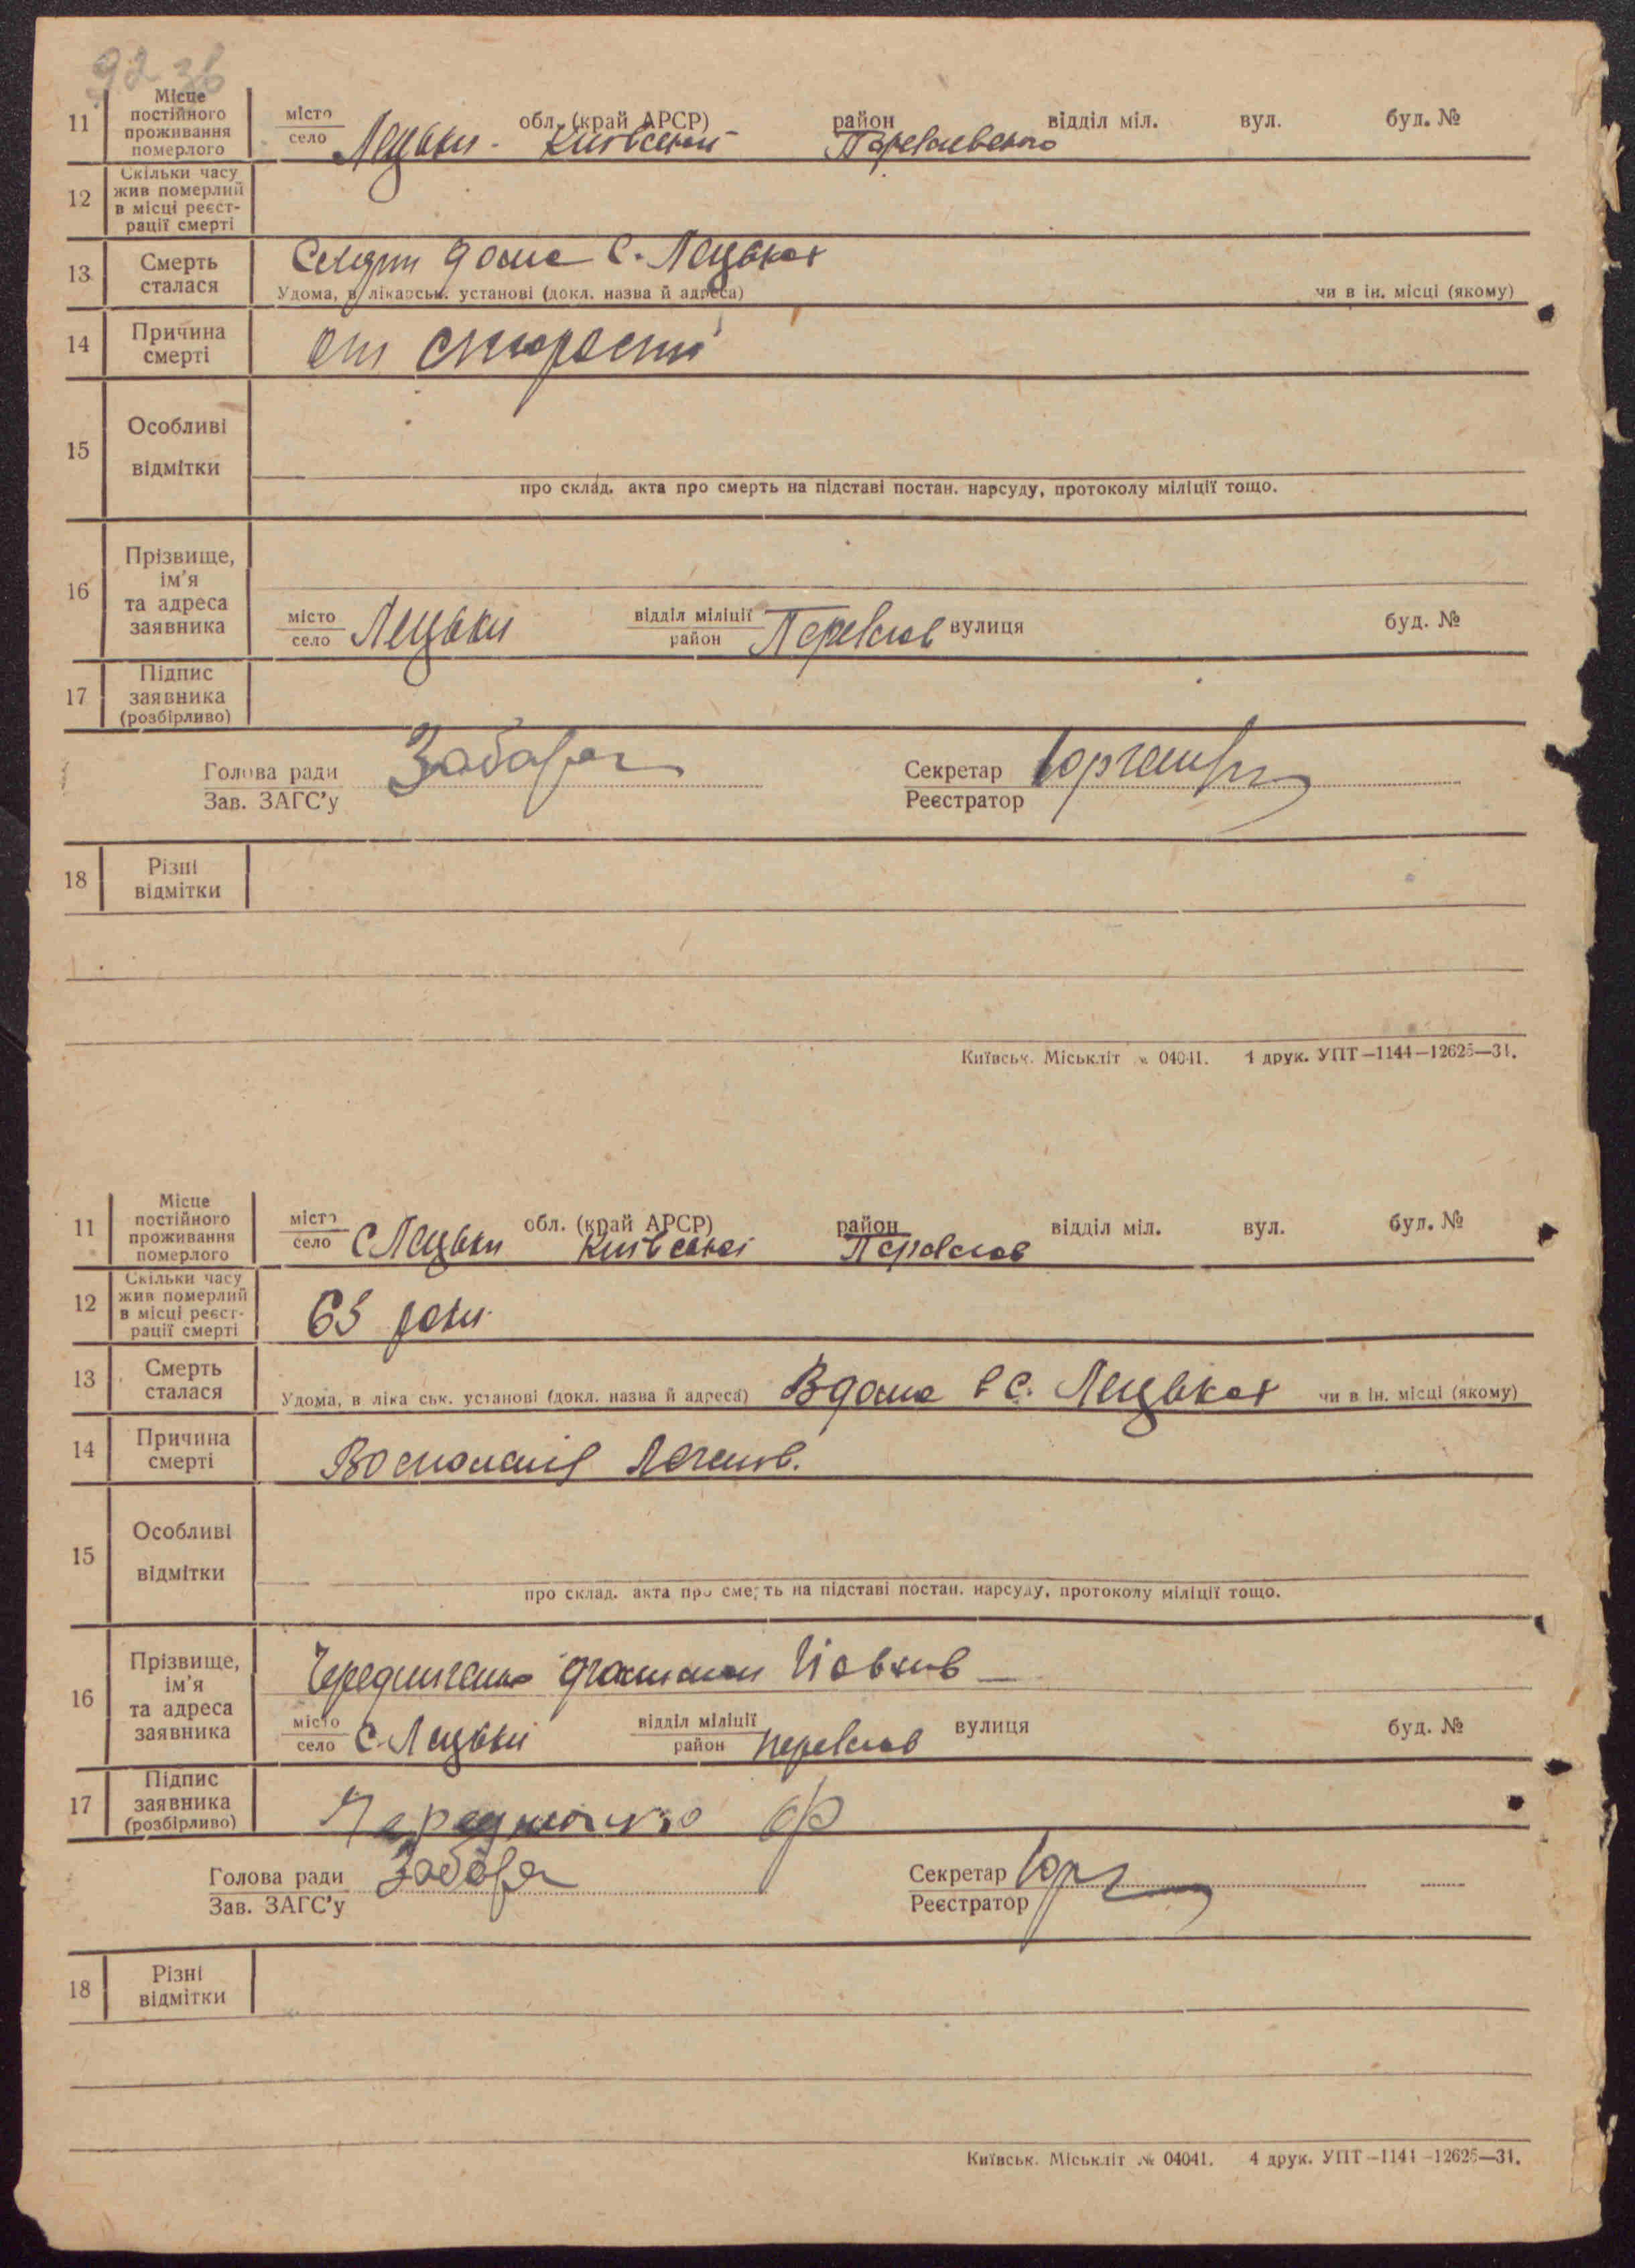 92 зв
11 Місце постійного проживання померлого місто село Лецьки. обл. (край АРСР) Київської район Переяславського відділ міл. вул. буд. №
12 Скільки часу жив померлий в місці реєстрації смерті
13 Смерть сталася дома С. Лецьках
Удома, в лікарськ. установі (докл. назва й адреса) чи в ін. місці (якому)
14 Причина смерті От старости
15 Особливі відмітки
про склад. акта про смерть на підставі постан. нарсуду, протоколу міліції тощо.
16 Прізвище, ім'я та адреса заявника
місто село Лецьки відділ міліції район Переяслав вулиця буд. №
17 Підпис заявника (розбірливо)
Голова ради Забара Секретар
Зав. ЗАГС'у Реєстратор
18 Різні відмітки
Київськ. Міськліт № 04041. 4 друк. УПТ—1144—12625—31.
11 Місце постійного проживання померлого місто село С Лецьки обл. (край АРСР) Київської район Переяслав відділ міл. вул. буд. №
12 Скільки часу жив померлий в місці реєстрації смерті 63 роки
13 Смерть сталася Удома, в лікарськ. установі (докл. назва й адреса) Вдома в с. Лецьках чи в ін. місці (якому)
14 Причина смерті
15 Особливі відмітки
про склад. акта про смерть на підставі постан. нарсуду, протоколу міліції тощо.
16 Прізвище, ім'я та адреса заявника Чередниченко
місто село С. Лецьки відділ міліції район Переяслав вулиця буд. №
17 Підпис заявника (розбірливо)
Голова ради Забара Секретар
Зав. ЗАГС'у Реєстратор
18 Різні відмітки
Київськ. Міськліт № 04041. 4 друк. УПТ—1141—12625—31.